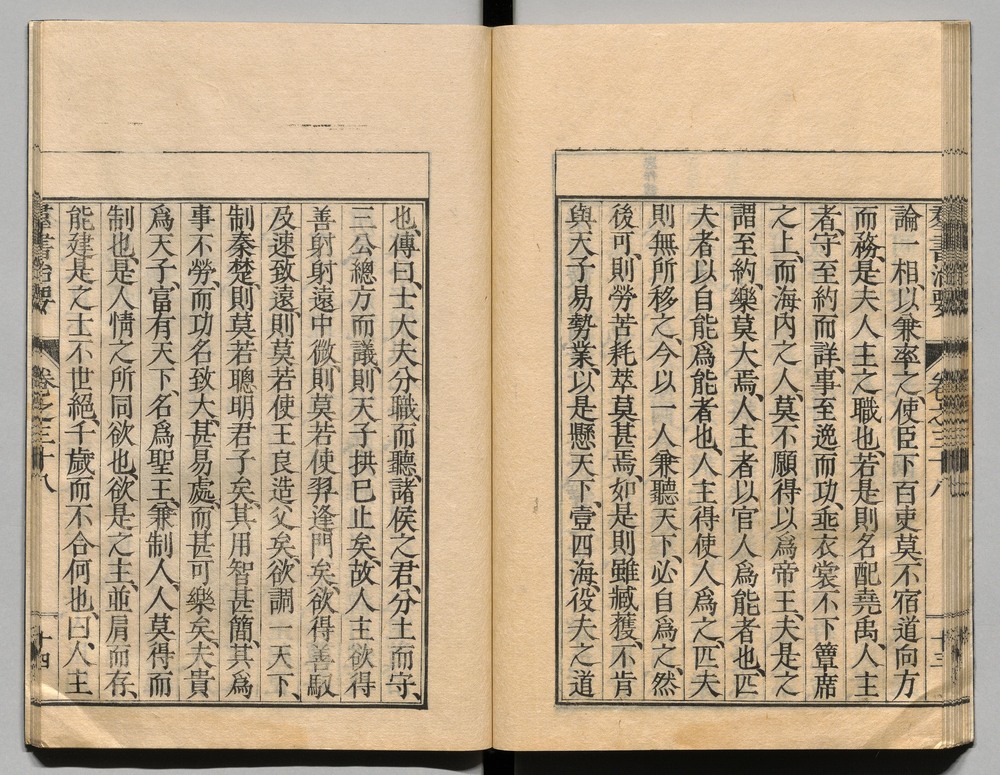 羣書治要 卷之三十八 十三
論一相、以兼率之、使臣下百吏莫不宿道向方
而務、是夫人主之職也、若是則名配堯禹、人主
者、守至約而詳、事至逸而功、垂衣裳不下簟席
之上、而海內之人、莫不願得以爲帝王、夫是之
謂至約、樂莫大焉、人主者以官人爲能者也、匹
夫者以自能爲能者也、人主得使人爲之、匹夫
則無所移之、今以一人兼聽天下、必自爲之、然
後可、則勞苦耗萃莫甚焉、如是則雖臧獲、不肯
與天子易勢業、以是懸天下、壹四海、役夫之道
也、傳曰、士大夫分職而聽、諸侯之君、分土而守、
三公總方而議、則天子拱已止矣、故人主欲得
善射射遠中微、則莫若使羿逢門矣、欲得善馭
及速致遠、則莫若使王良造父矣、欲調一天下、
制秦楚、則莫若聰明君子矣、其用智甚簡、其爲
事不勞、而功名致大、甚易處、而甚可樂矣、夫貴
爲天子、富有天下、名爲聖王、兼制人、人莫得而
制也、是人情之所同欲也、欲是之主、並肩而存、
能建是之士不世絕、千歲而不合何也、曰、人主
羣書治要 卷之三十八 十四